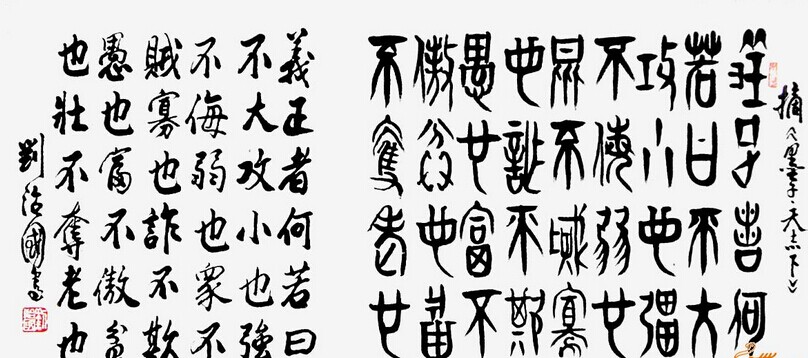 摘《墨子·天志下》
義正者何
若曰不大
攻小也彊
不侮弱也
眾不賊寡
也詐不欺
愚也富不
傲貧也壯
不奪老也
義正者何若曰
不大攻小也強
不侮弱也眾不
賊寡也詐不欺
愚也富不傲貧
也壯不奪老也
劉治國書